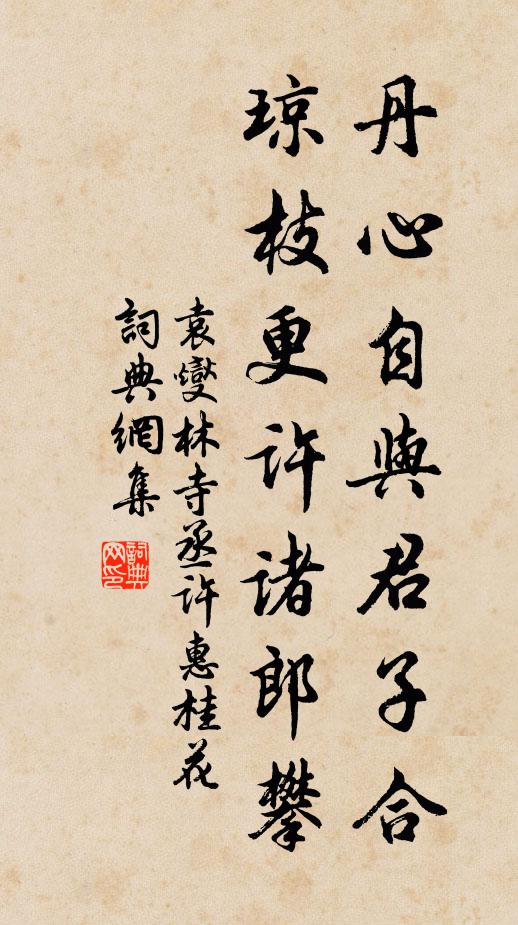 丹心自與君子合
琼枝更許諸郎攀
袁燮林寺丞許惠桂花
詞典網集
詞典网印